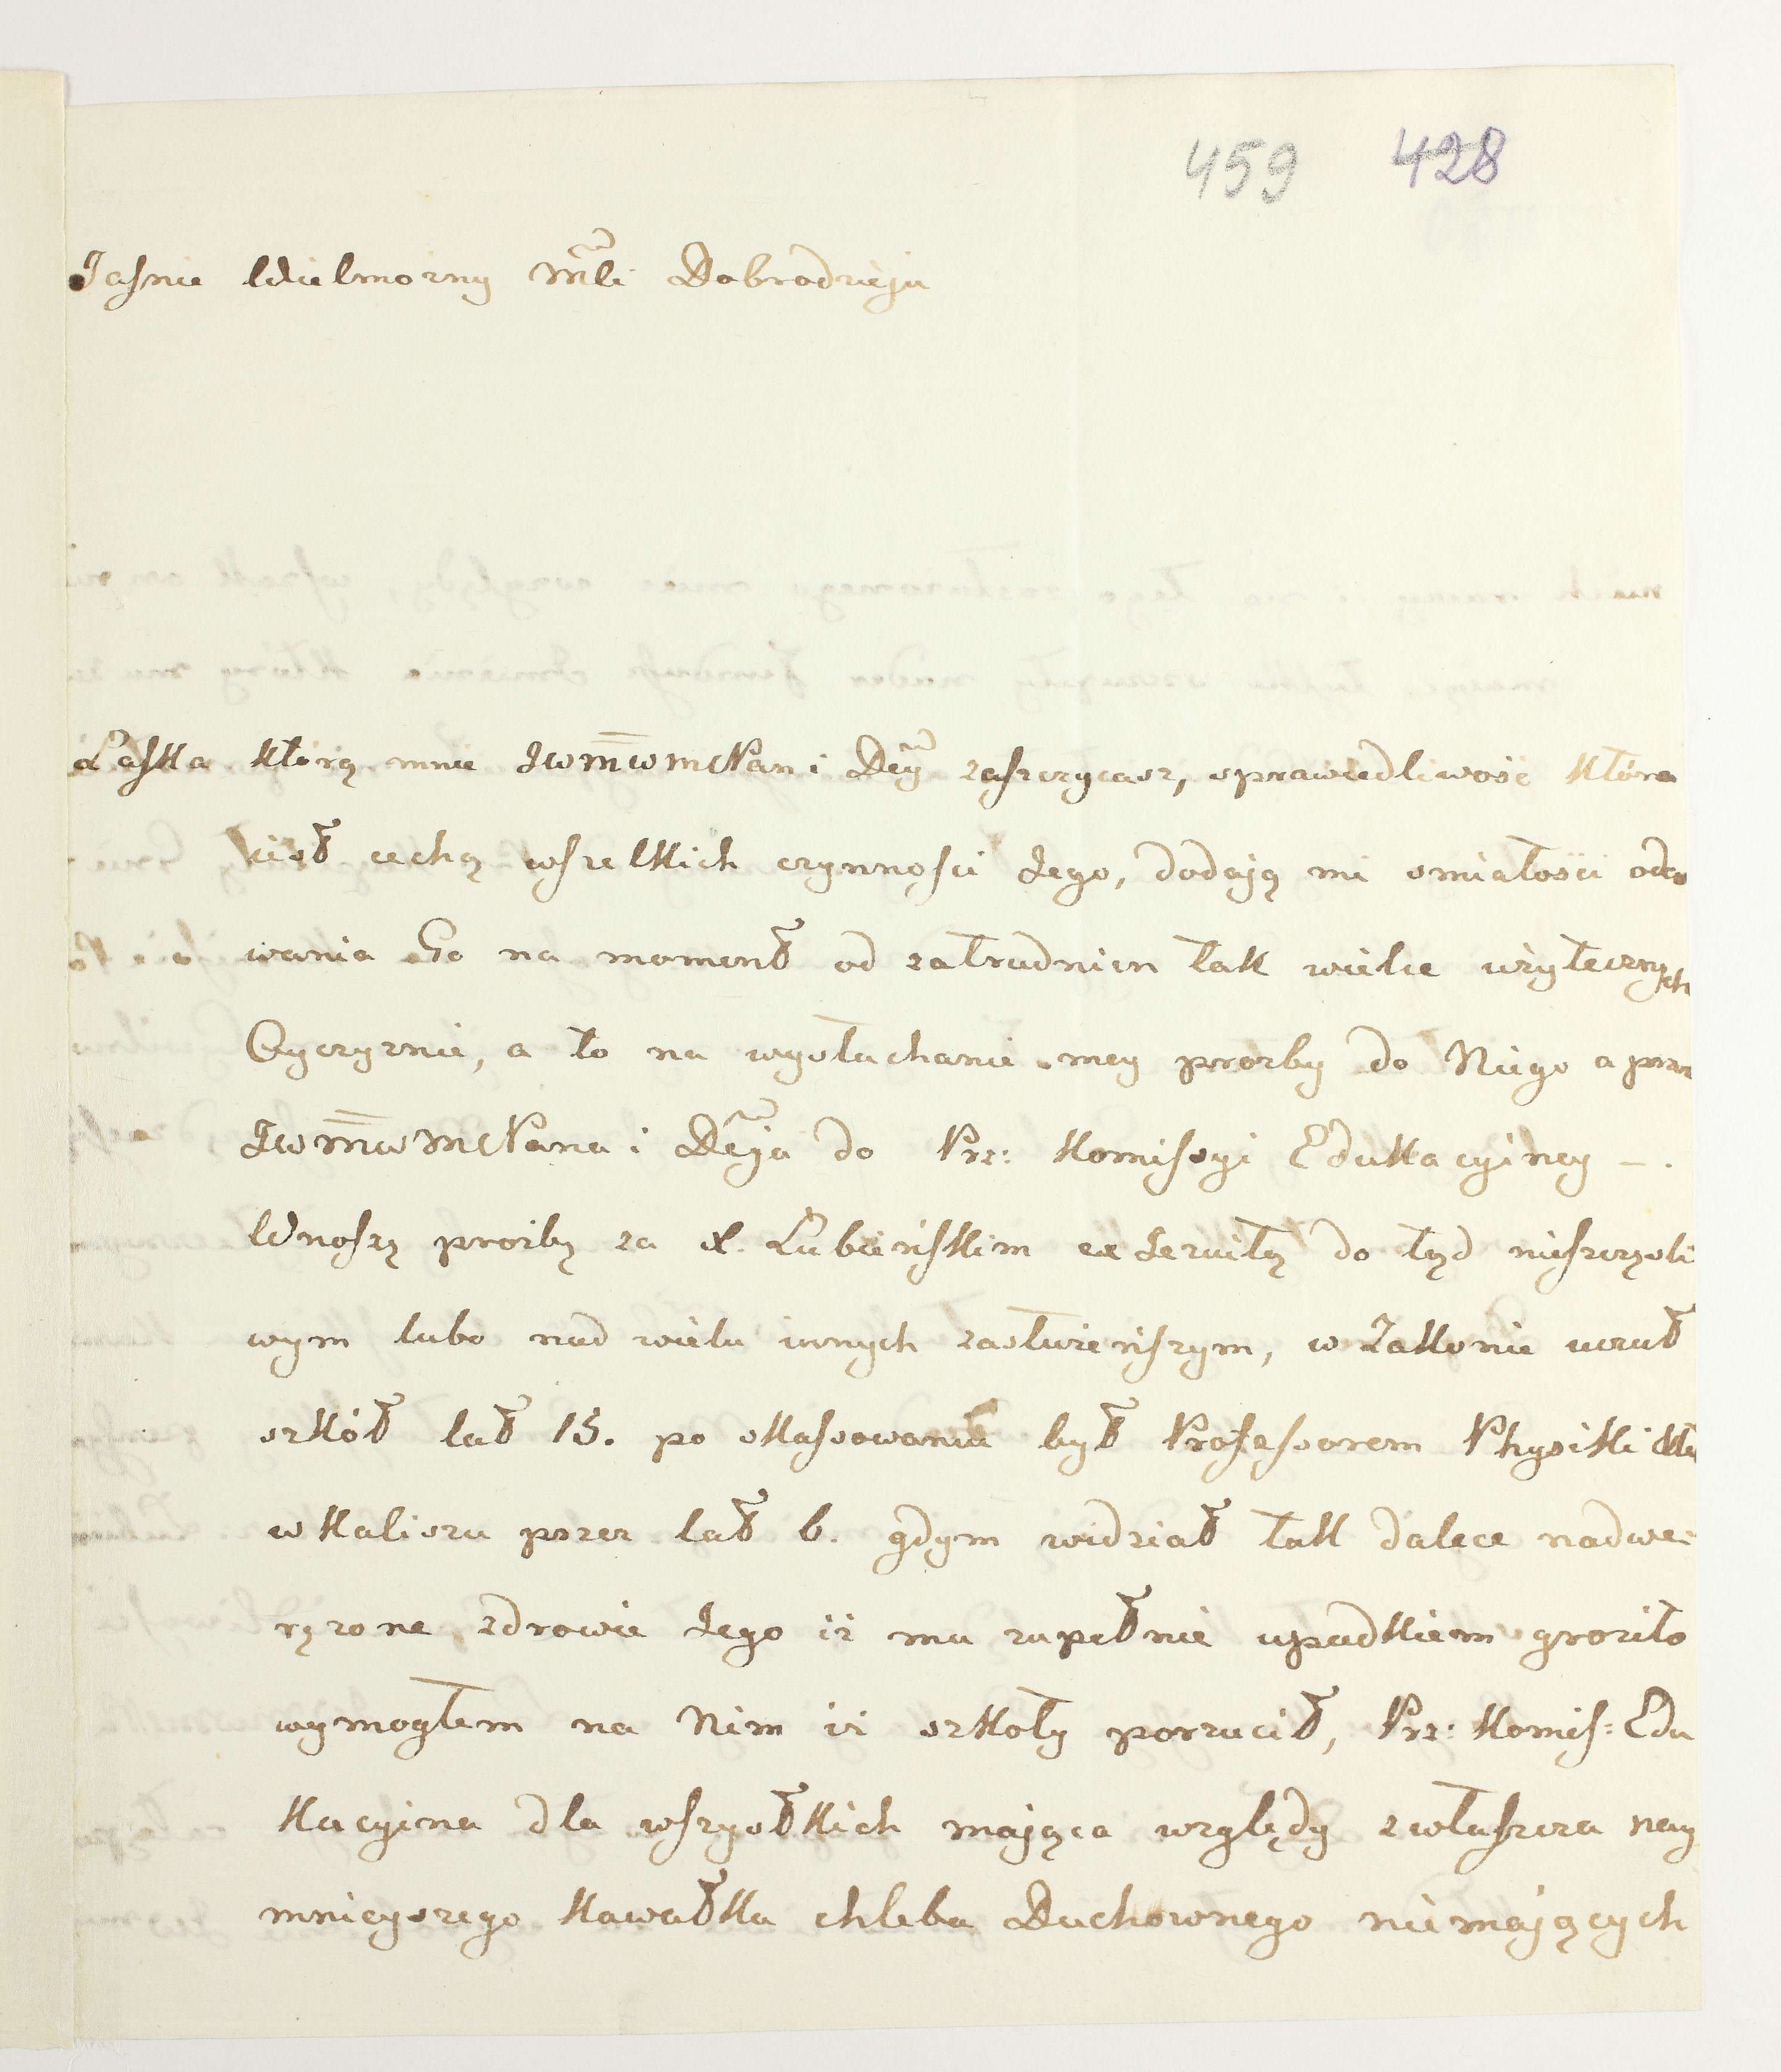 459 428
Jaśnie Wielmożny Mci Dobrodzieju
Łaska którą mnie JWmWmcPan i Dey zaszczycasz, sprawiedliwość która
iest cechą wszelkich czynności Jego, dodają mi smiałości
wania Go na moment od zatrudnien tak wielce użytecznych
Oyczyznie, a to na wysłuchanie mey prozby do Niego a przez
JWmWmcPana i Deja do Prz: Komissyi Edukacyiney -.
Wnoszę prozbę za X. Łubieńskim ex Jezuitą do tąd nieszczęśli
wym lubo nad wielu innych zasłużeńszym, w Zakonie uczył
szkół lat 15. po skassowaniu był Professorem Physiki
w Kaliszu przez lat 6. gdym widział tak dalece nadwe-
rężone zdrowie Jego iż mu zupełnie upadkiem groziło
wymogłem na Nim iż szkoły porzucił, Prz: Komis: Edu
kacyina dla wszystkich mająca względy zwłaszcza nay
mnieyszego kawałka chleba Duchownego niemających